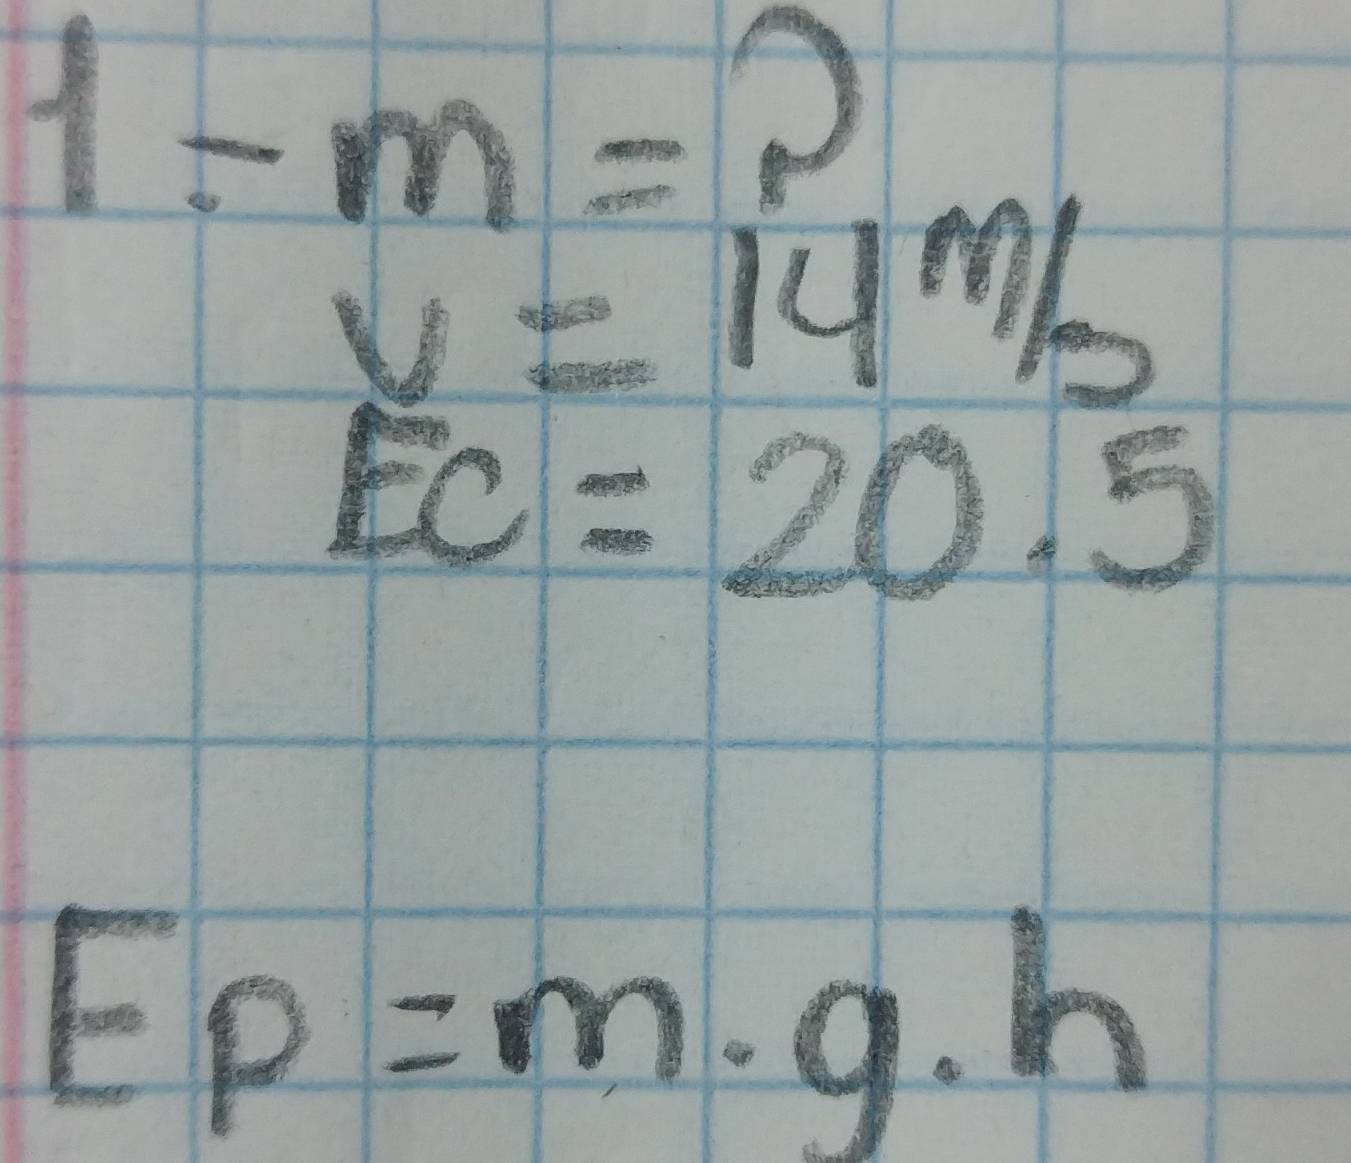 1.- m = ?
v = 14 m/s
Ec = 20.5
Ep = m.g.h